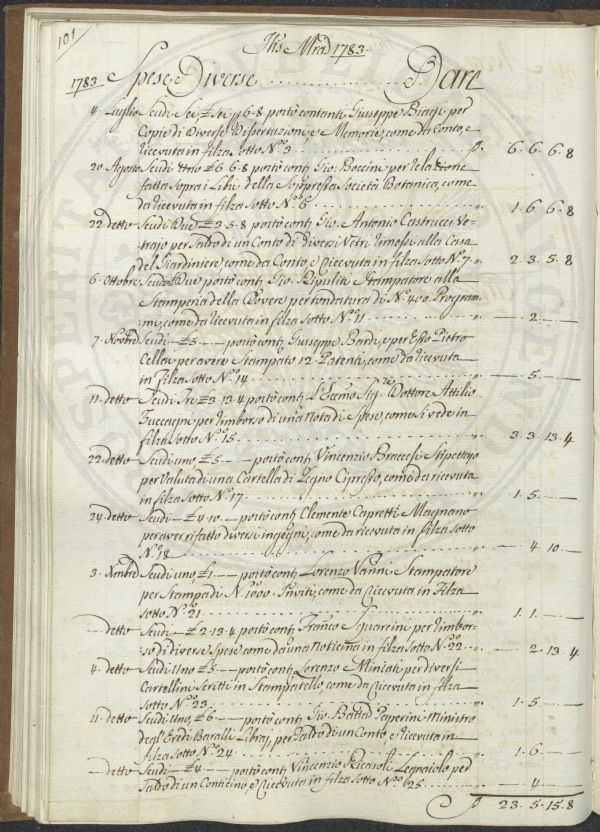 101
Jhs Mrã 1783
1783 Spese Diverse . . . . . . . . . . . Dare
4 Luglio Scudi Sei £ Sei, 6.8 portò contanti Giuseppe Biagi per
Copie di Diverse Dissertazioni, e Memorie, come da Conto, e
ricevuta in filza sotto N.o 3 . . . . 6. 6. 6. 8
20 Agosto Scudi Uno £ 6. 6. 8 portò conti Gio. Boccini per relazione
fatta Sopra i Libri della Soppressa Società Botanica, come
da ricevuta in filza sotto N.o 6 . . . . 1. 6. 6. 8
22 detto Scudi Due £ 3. 5. 8 portò conti Gio. Antonio Castrucci Ve-
trajo per Saldo di un Conto di diversi Vetri rimessi alla Casa
del Giardiniere, come da Conto, e ricevuta in filza sotto N.o 7 . . 2. 3. 5. 8
6. Ottobre Scudi Due portò conti Gio. Ripuliti Stampatore alla
Stamperia della Rovere per tondatura di N.o 400. Program-
mi, come da ricevuta in filza sotto N.o 11 . . . — 2. — —
7. Novbre Scudi — £ 5. — — portò conti Giuseppe Bardi, e per Esso Pietro
Cella, per avere Stampato 12. Patenti, come da ricevuta
in Filza sotto N.o 14 . . . . — 5. — —
11. detto Scudi Tre £ 3. 13. 4 portò conti L'Eccmo Sigre Dottore Attilio
Zuccagni per rimborso di una Nota di Spese, come si vede in
filza sotto N.o 15 . . . . 3. 3. 13. 4
22. detto Scudi uno, £ 5. — — portò conti Vincenzio Braccesi Stipettajo
per Valuta di una Cartella di Legno Cipresso, come da ricevuta
in filza sotto N.o 17 . . . . 1. 5. — —
24. detto Scudi — £ 4. 10. — portò conti Clemente Capretti Magnano
per aver rifatto diversi ingegni, come da ricevuta in filza sotto
N.o 18 . . . . — 4. 10. —
3. Xmbre Scudi uno, £ 1. — — portò conti Lorenzo Vanni Stampatore
per Stampa di N.o 1000. Inviti, come da ricevuta in Filza
sotto N.o 21 . . . . 1. 1. — —
— detto Scudi — £ 2. 13. 4 portò conti Franco Sguarcini per rimbor-
so di diverse Spese come da una noticina in filza sotto N.o 22 . . — 2. 13. 4
4. detto Scudi Uno £ 5. — — portò conti Lorenzo Miniati per diversi
Cartellini Scritti in Stampatello, come da ricevuta in filza
sotto N.o 23 . . . . 1. 5. — —
11. detto Scudi Uno, £ 6. — — portò conti Gio. Batta Peperini Ministro
degl'Eredi Baralli Libraj, per Saldo di un Conto e ricevuta in
filza sotto N.o 24 . . . . 1. 6. — —
— detto Scudi — £ 4. — — portò conti Vincenzio Ricasoli Legnaiolo per
Saldo di un Conticino, e ricevuta in filza sotto N.o 25 . . . — 4. — —
23. 5. 15. 8